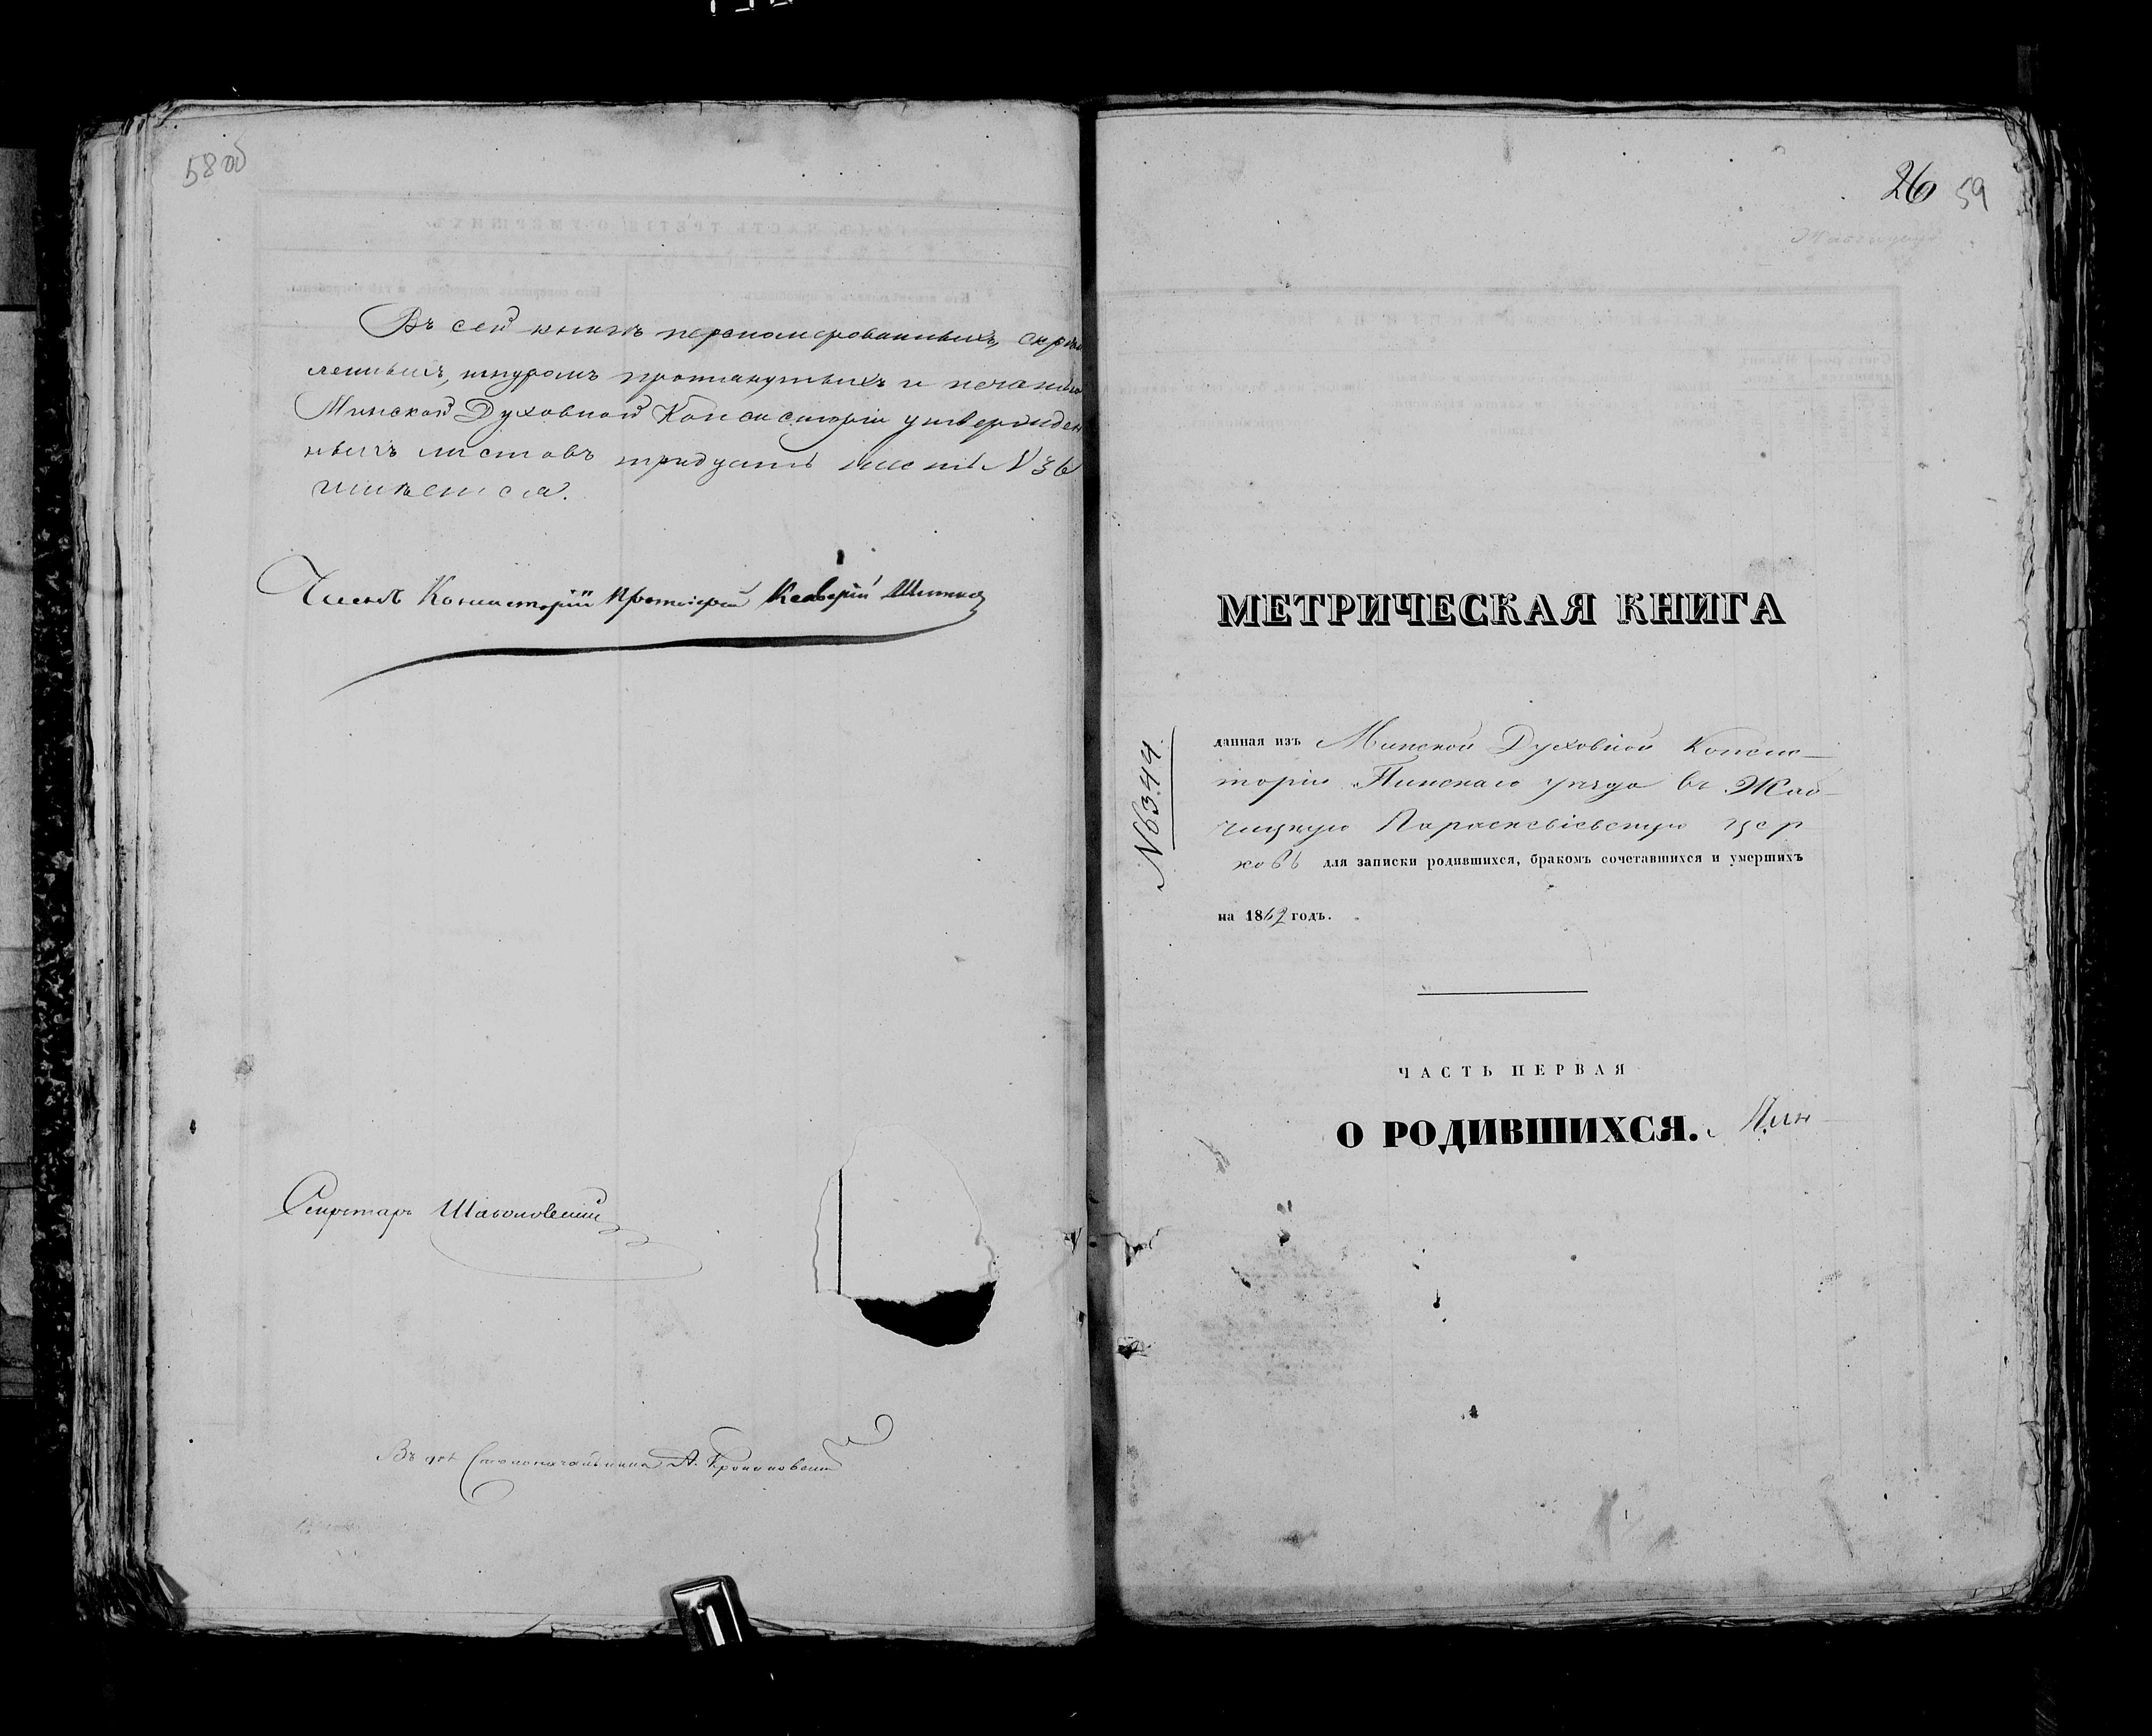 58 об
Въ сей книгѣ перенумерованныхъ, скрѣп
ленныхъ, шнуромъ протянутыхъ и печатью
Минской Духовной Консисторіи утвержден
ныхъ листовъ тридцать шесть N 36
имѣется.
Членъ Консисторіи Протоіерей Ксаверій
Секретарь
Въ дол. Столоначальника А.
26 59
МЕТРИЧЕСКАЯ КНИГА
N 6344
данная изъ Минской Духовной Консис-
торіи Пинскаго уѣзда въ Жаб-
чицкую Параскевіевскую цер
ковь для записки родившихся, бракомъ сочетавшихся и умершихъ
на 1862 годъ.
ЧАСТЬ ПЕРВАЯ
О РОДИВШИХСЯ.